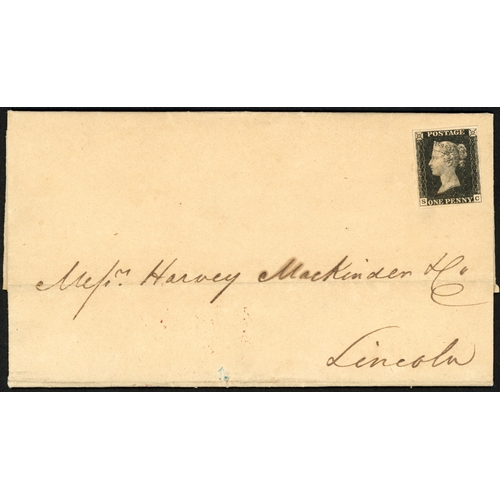 POSTAGE
S C
ONE PENNY
Messrs. Harvey Mackinder & Co
Lincoln